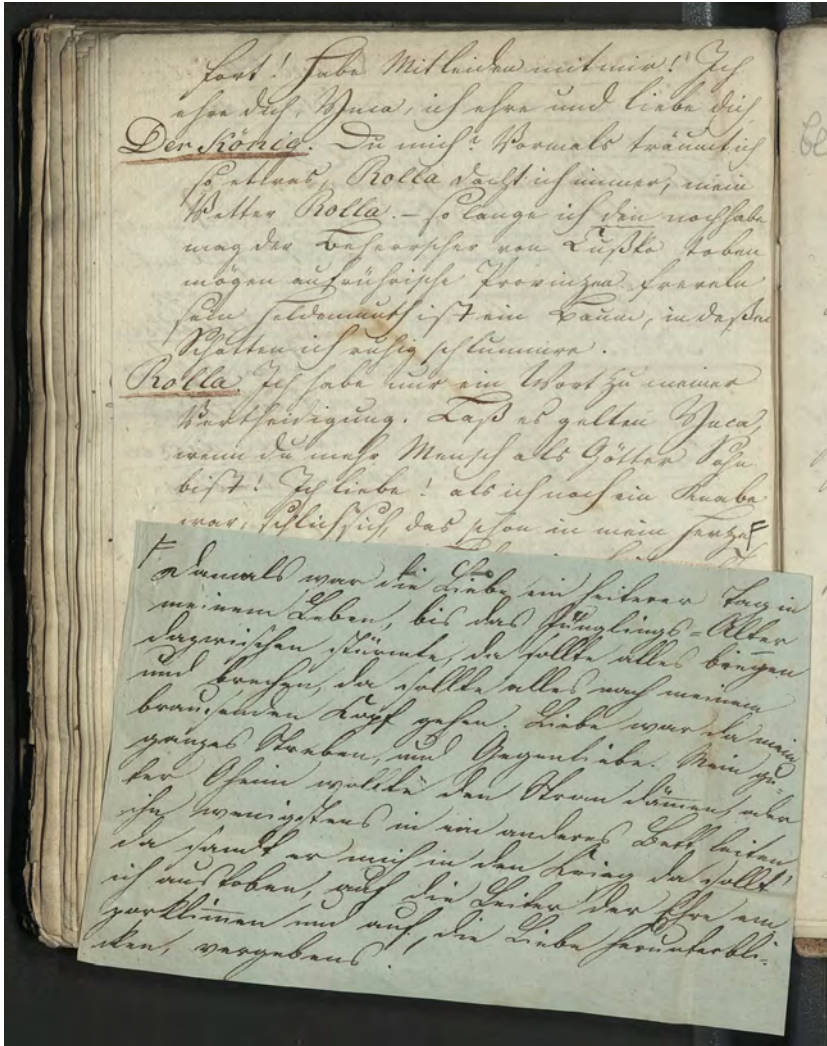 fort! Habe Mitleiden mit mir! Ich
ehre dich, Ynca, ich ehre und liebe dich
Der König. Du mich? Vormals träumt ich
so etwas, Rolla dacht ich immer, mein
Vetter Rolla. – so lange ich den noch habe
mag der Beherrscher von Kußko toben
mögen aufrührische Provinzen freveln
sein Heldenmuth ist ein Baum, in deßen
Schatten ich ruhig schlummre.
Rolla Ich habe nur ein Wort zu meiner
Vertheidigung. Laß es gelten Ynca,
wenn du mehr Mensch als Götter Sohn
bist! Ich liebe! als ich noch ein Knabe
war, schlich sich das schon in mein Herze F
F
Damals war die Liebe ein heiterer Tag in
meinem Leben, bis das Jünglings-Alter
dazwischen stürmte, da sollte alles biegen
und brechen, da sollte alles nach meinem
brausenden Kopf gehen. Liebe war da mein
ganzes Streben, und Gegenliebe. Mein gu-
ter Oheim wollte den Strom dämen, oder
ihn wenigstens in ein anderes Bett leiten
da sandt er mich in den Krieg da sollt'
ich austoben, auf die Leiter der Ehre em
porklimen und auf die Liebe herunterbli-
cken, vergebens.